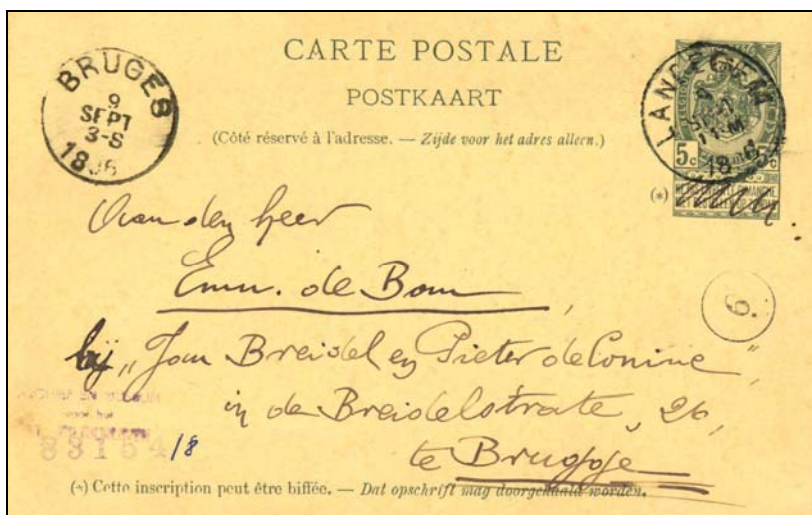 CARTE POSTALE
POSTKAART
(Côté réservé à l'adresse. — Zijde voor het adres alleen.)
BRUGES
9
SEPT
3-S
18 6
LANDEGEM
SEPT
11-M
18
5c 5c
(*)
Aan den heer
Emm. de Bom,
bij „Jan Breidel en Pieter de Coninc”,
in de Breidelstrate, 26,
te Brugge
6.
83154/8
(*) Cette inscription peut être biffée. — Dat opschrift mag doorgehaald worden.